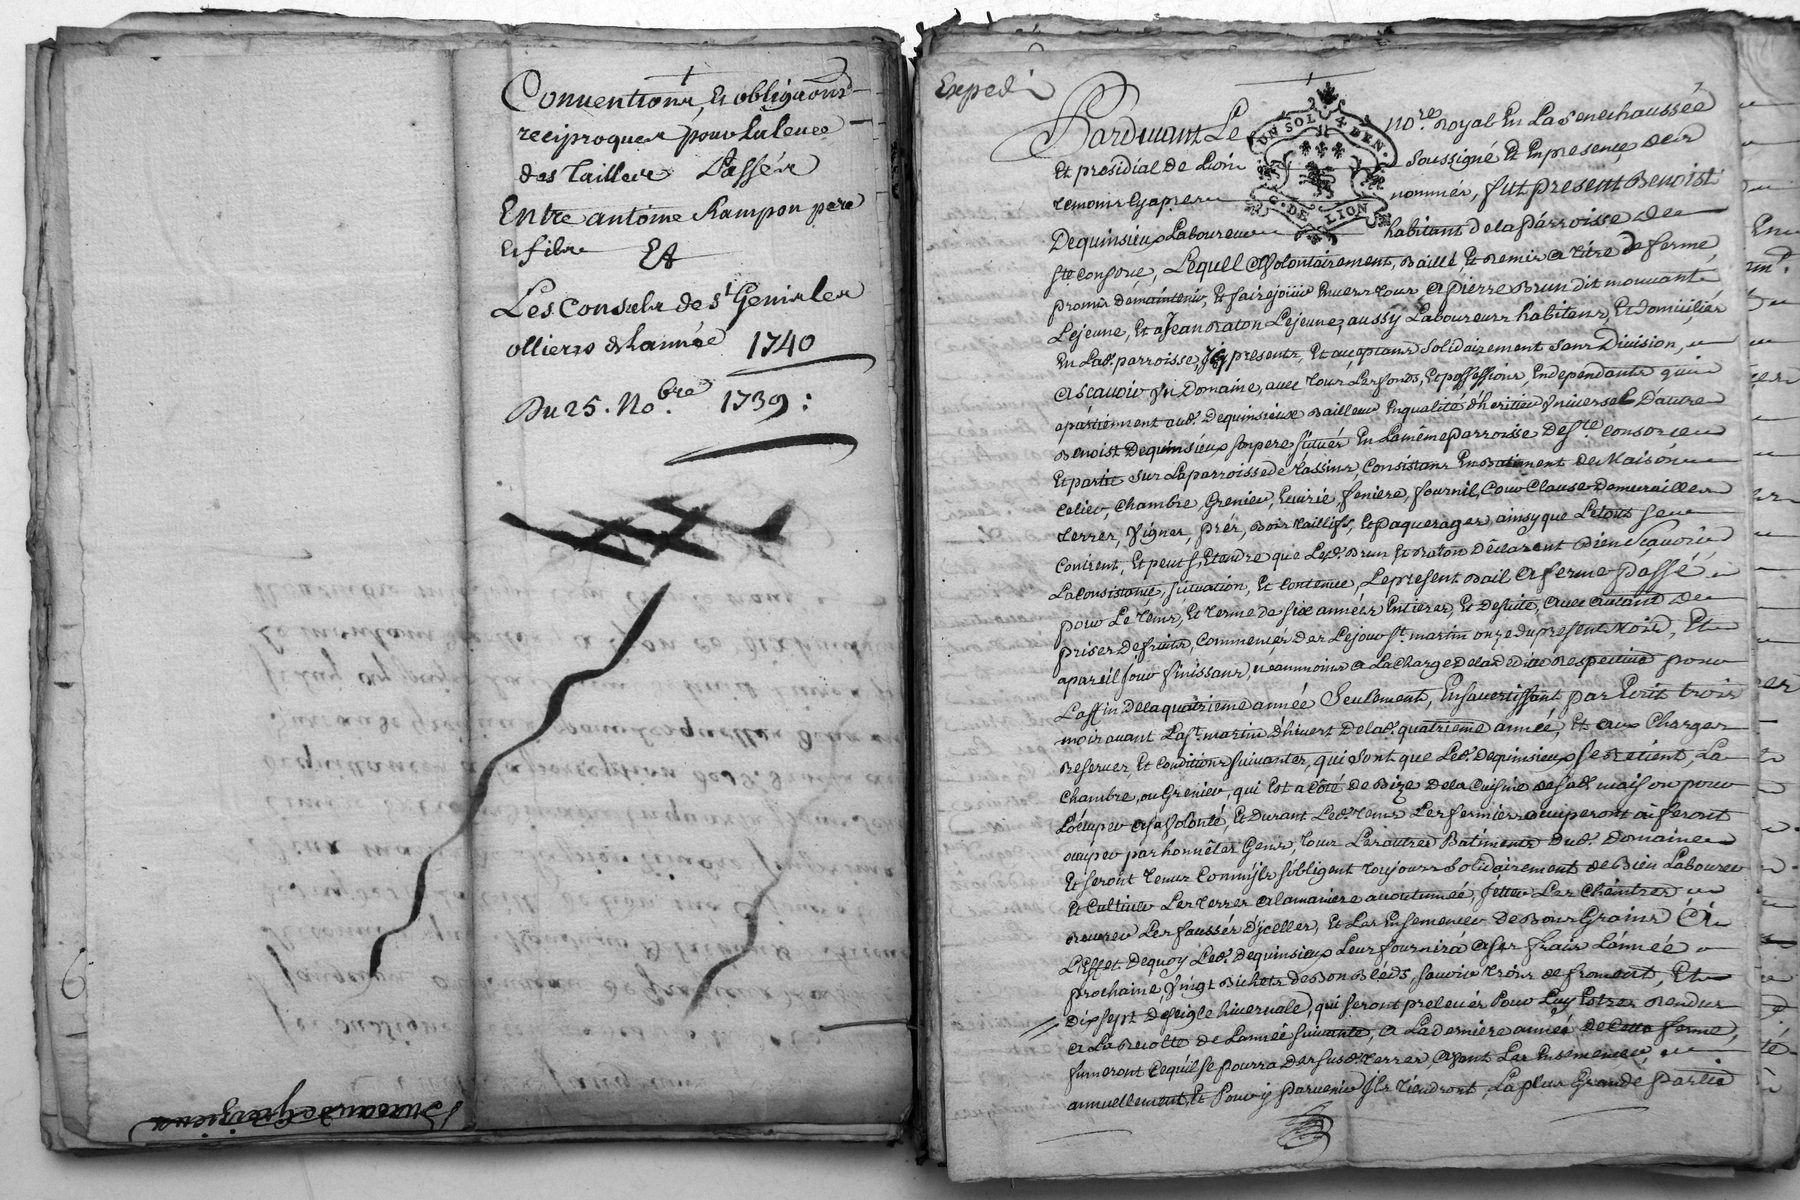 Conventions, Et obligaons
reciproques pour la levée
des Tailles Passées
Entre antoine Rampon pere
Et fils Et
Les Consuls de St Genis les
olliers de Lannée 1740
Du 25. No.bre 1739 :
Bureau de Grezieux
Expedi
Pardevant Le no.re Royal En La Senechaussée
Et presidial de Lion soussigné Et En presence des
temoins Cy apres nommes, fut present Benoist
Dequinsieux Laboureur habitant de la Parroisse de
Ste Consorce, Lequell a Volontairement, Baillé, Et Remis a titre de ferme,
promis de maintenir, Et faire jouir Envers tous a pierre Brun dit mouvant
Lejeune, Et a Jean Raton Lejeune, aussy Laboureurs habitans, Et domiciliés
En Lad. parroisse, Icy presents, Et acceptans solidairement sans Division,
a scavoir un Domaine, avec tous Les fonds, Et possessions, Independants qui
apartiennent aud. Dequinsieux Bailleur En qualité d'heritier universel, D'autre
Benoist Dequinsieux son pere situés En La même parroisse De Ste Consorce
Et partie sur La parroisse de tassins, Consistans En Batiment de Maison
Celier, Chambre, Grenier, Ecurie, feniere, fournil, Cour Clause de murailles
terres, Vignes, prés, Bois taillifs, Et paquerages, ainsy que Letout se
Contient, Et peut s'Etendre que Lesd. Brun Et Raton Déclarent Bien scavoir
La Consistance, situation, Et Contenue, Le present Bail a ferme passé
pour Le tems, Et terme de six années Entieres, Et de suite, avec autant de
prises de fruits, Commencés des Lejour St. martin onze du present Mois, Et
a pareil jour finissans, néanmoins a La Charge de la d Dite Respective pour
La fin de la quatrieme année Seulement, En s'avertissant par Ecrit trois
mois avant La St. martin d'hivert De lad. quatrieme année, Et aux Charges
Reserves, Et Conditions suivantes, qui sont que Led. Dequinsieux se Retient, La
Chambre, ou Grenier, qui Est a Côté de Bize De la Cuisine de sad. maison pour
L'ocuper a sa Volonté, Et durant Led. tems Les fermiers ocuperont où feront
ocuper par honnêtes Gens, tous Les autres Batiments Dud. Domaine
Et seront tenus Comm'ils s'obligent toujours solidairement de Bien Labourer
Et Cultiver Les terres a la maniere acoutumée, Jetter Les Cheintres
recurer Les faussés D'yceller, Et Les Ensemencer De Bons Grains A
L'Effet Dequoy Led. Dequinsieux Leur fournira a ses frais L'année
prochaine, Vingt Bichets de Bon Bleds, savoir trois de froment, Et
Dix sept de seigle hivernale, qui seront prelevés Pour Luy Estres Rendus
a La Recolte de L'année suivante, a La derniere année de Cette ferme,
fumeront Cequ'il se pourra Des susd. terres, avant Les Ensemencer,
annuellement, Et Pour y parvenir Ils tiendront, La plus Grande partie